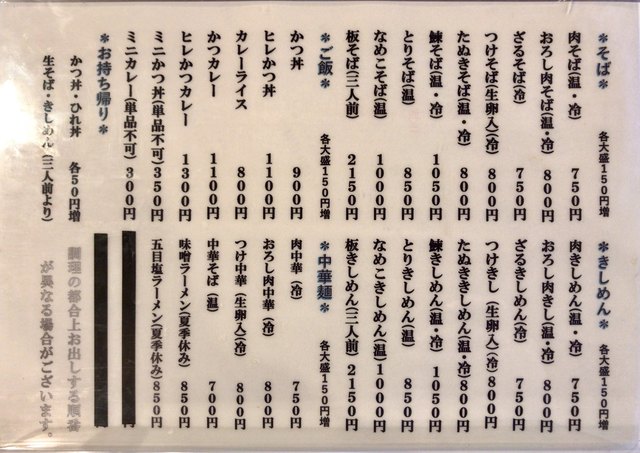 ＊そば＊　各大盛１５０円増
肉そば（温・冷）　７５０円
おろし肉そば（温・冷）　８００円
ざるそば（冷）　７５０円
つけそば（生卵入）（冷）　８００円
たぬきそば（温・冷）　８００円
鰊そば（温・冷）　１０５０円
とりそば（温）　８５０円
なめこそば（温）　１０００円
板そば（三人前）　２１５０円
＊ご飯＊　各大盛１５０円増
かつ丼　９００円
ヒレかつ丼　１１００円
カレーライス　８００円
かつカレー　１１００円
ヒレかつカレー　１３００円
ミニかつ丼（単品不可）３５０円
ミニカレー（単品不可）３００円
＊お持ち帰り＊
かつ丼・ひれ丼　各５０円増
生そば・きしめん（三人前より）
＊きしめん＊　各大盛１５０円増
肉きしめん（温・冷）　７５０円
おろし肉きし（温・冷）　８００円
ざるきしめん（冷）　７５０円
つけきし（生卵入）（冷）　８００円
たぬききしめん（温・冷）８００円
鰊きしめん（温・冷）　１０５０円
とりきしめん（温）　８５０円
なめこきしめん（温）１０００円
板きしめん（三人前）２１５０円
＊中華麺＊　各大盛１５０円増
肉中華（冷）　７５０円
おろし肉中華（冷）　８００円
つけ中華（生卵入）（冷）　８００円
中華そば（温）　７００円
味噌ラーメン（夏季休み）　８５０円
五目塩ラーメン（夏季休み）８５０円
調理の都合上お出しする順番
が異なる場合がございます。